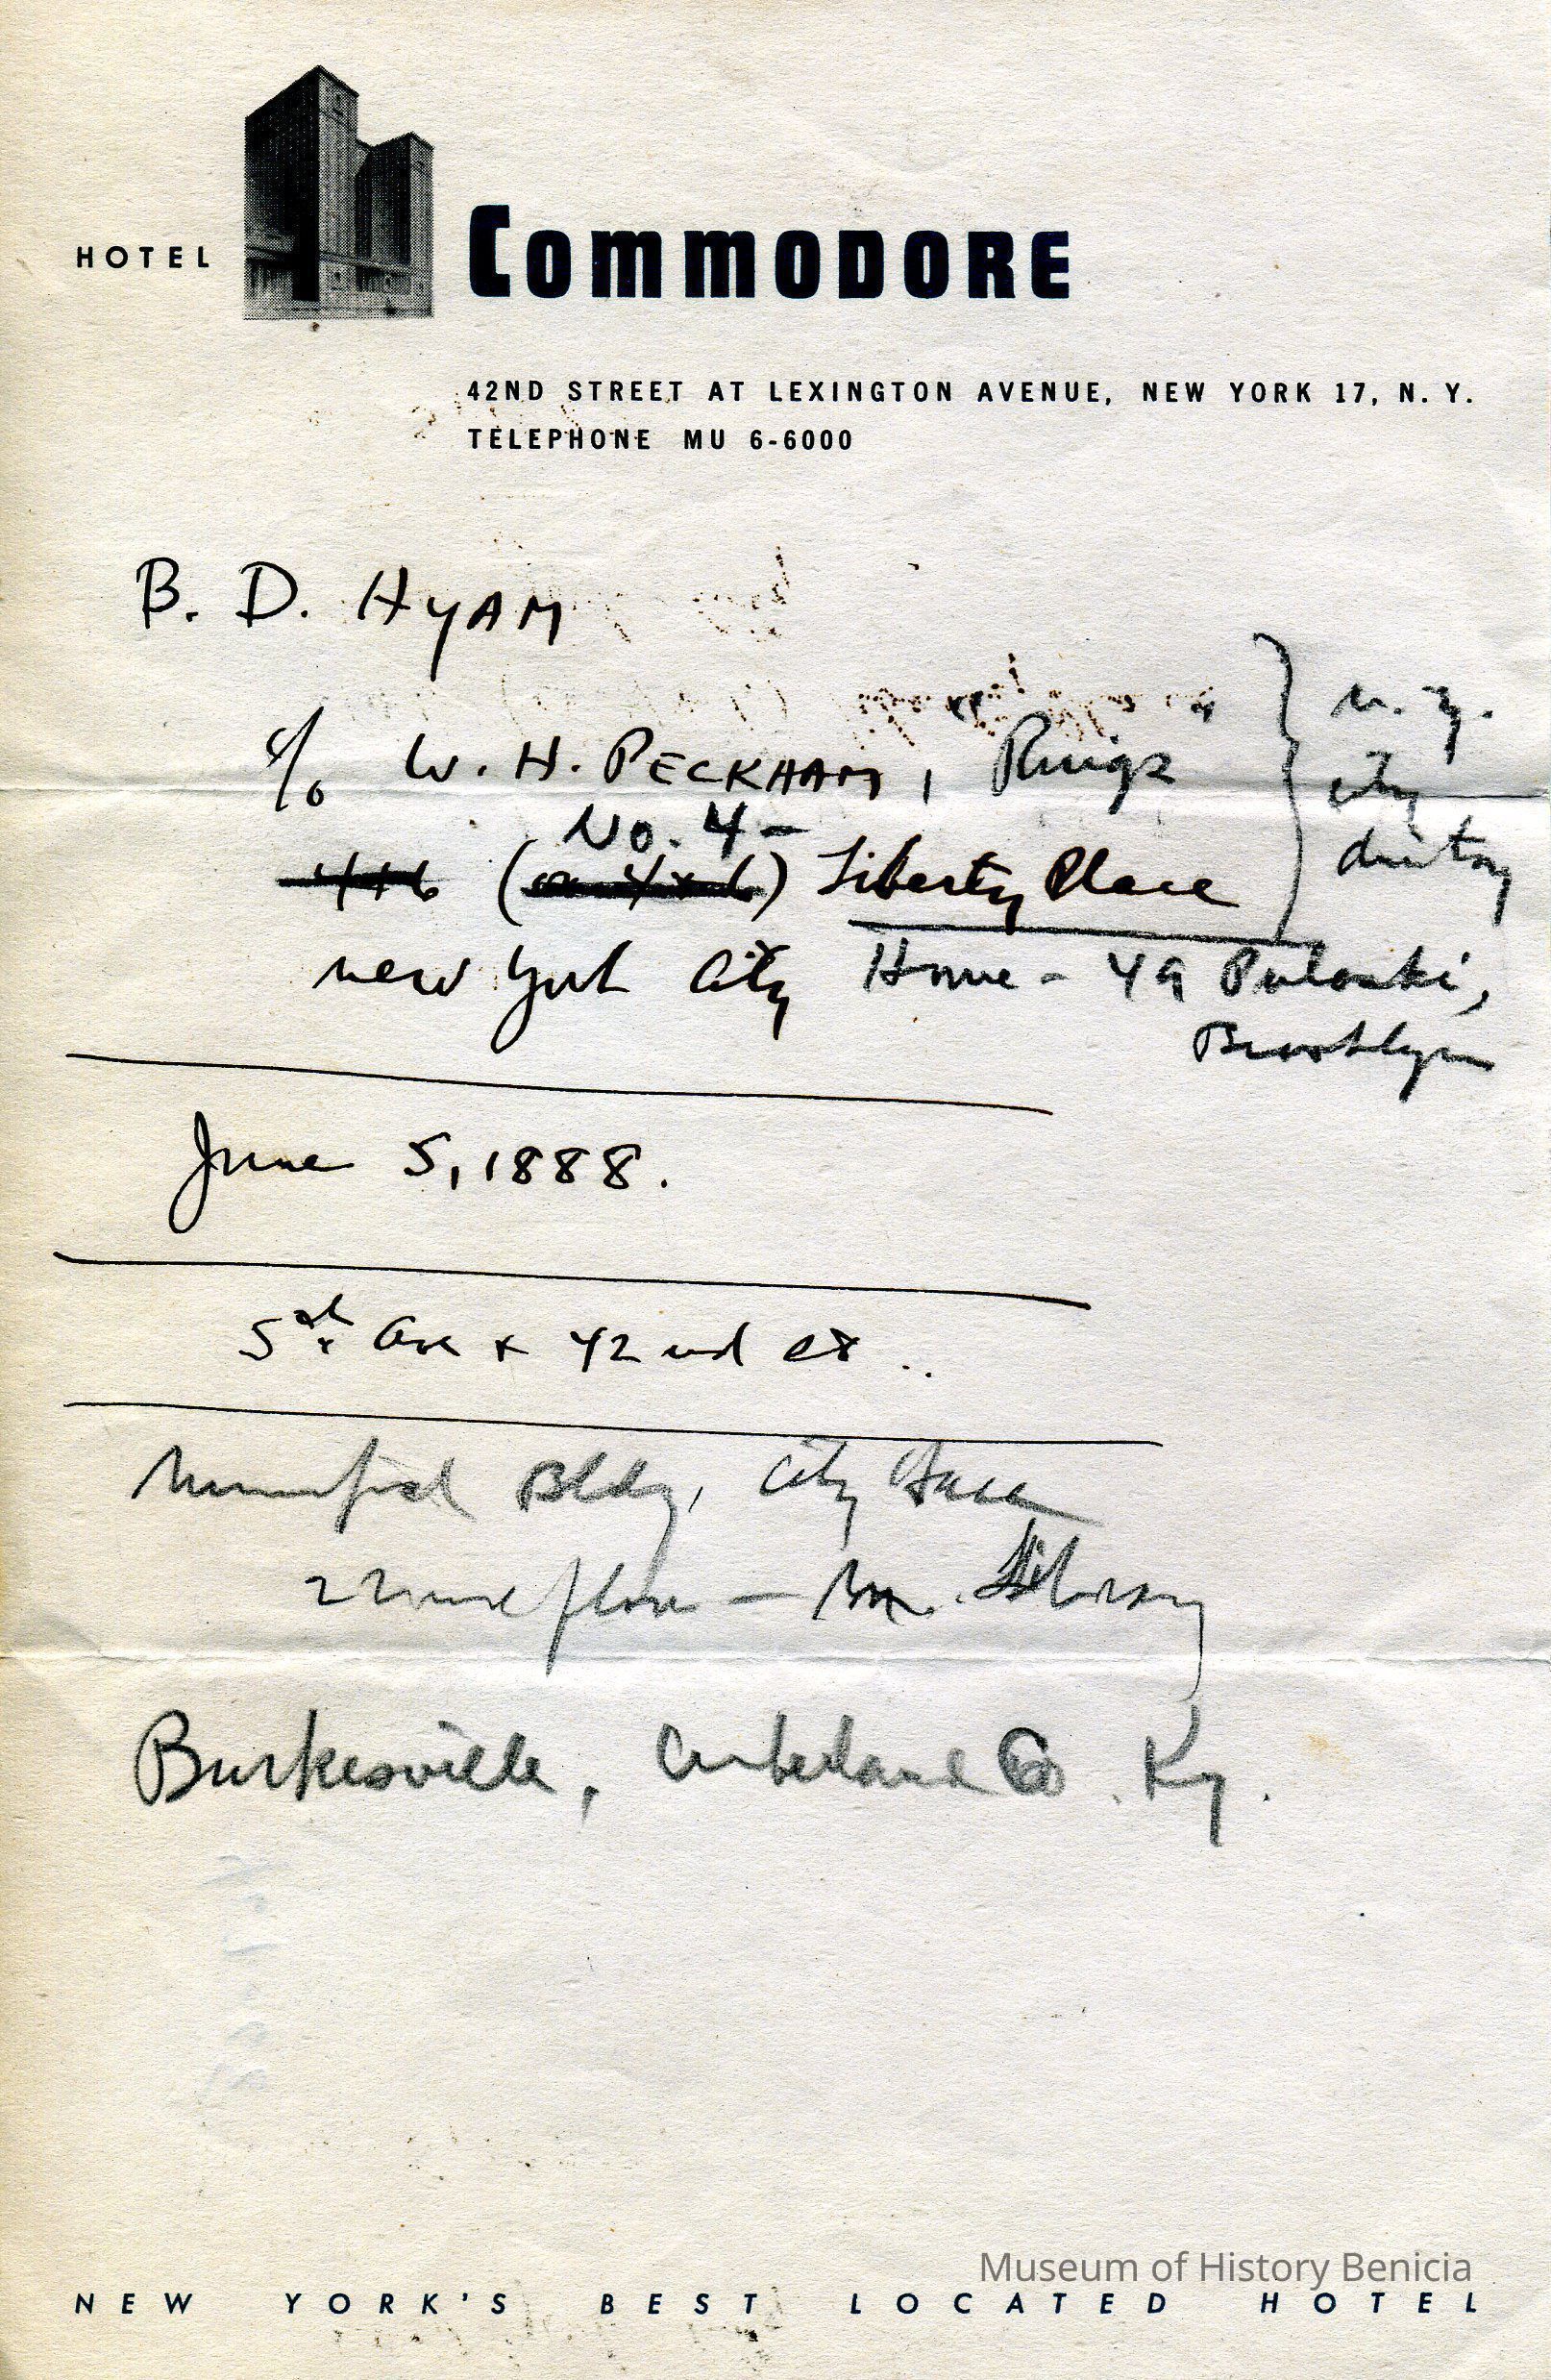 HOTEL COMMODORE
42ND STREET AT LEXINGTON AVENUE, NEW YORK 17, N. Y.
TELEPHONE MU 6-6000
B. D. HYAM
c/o W. H. PECKHAM, "Rings"
No. 4 -
4+6 ( ) Liberty Place
n. y.
city
directory
New York City Home - 49 Pulaski,
Brooklyn
June 5, 1888.
5th Ave + 42nd St.
Municipal Bldg, City Hall
22nd floor - Library
Burkesville, Cumberland Co. Ky.
Museum of History Benicia
NEW YORK'S BEST LOCATED HOTEL